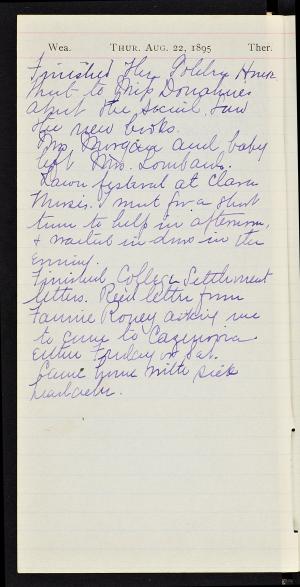 Wea. THUR. AUG. 22, 1895 Ther.
Finished The Golden House
Went to Miss Donahues
about the social, saw
the new books.
Mrs. Morgan and baby
left Mrs. Lombards.
Lawn festival at Clara
went for a short
time to help in afternoon,
& waited in in the
evening.
Finished College Settlement
letters. Rec'd letter from
Fannie asking me
to come to Cazenovia
either Friday or Sat.
Came home with sick
headache.